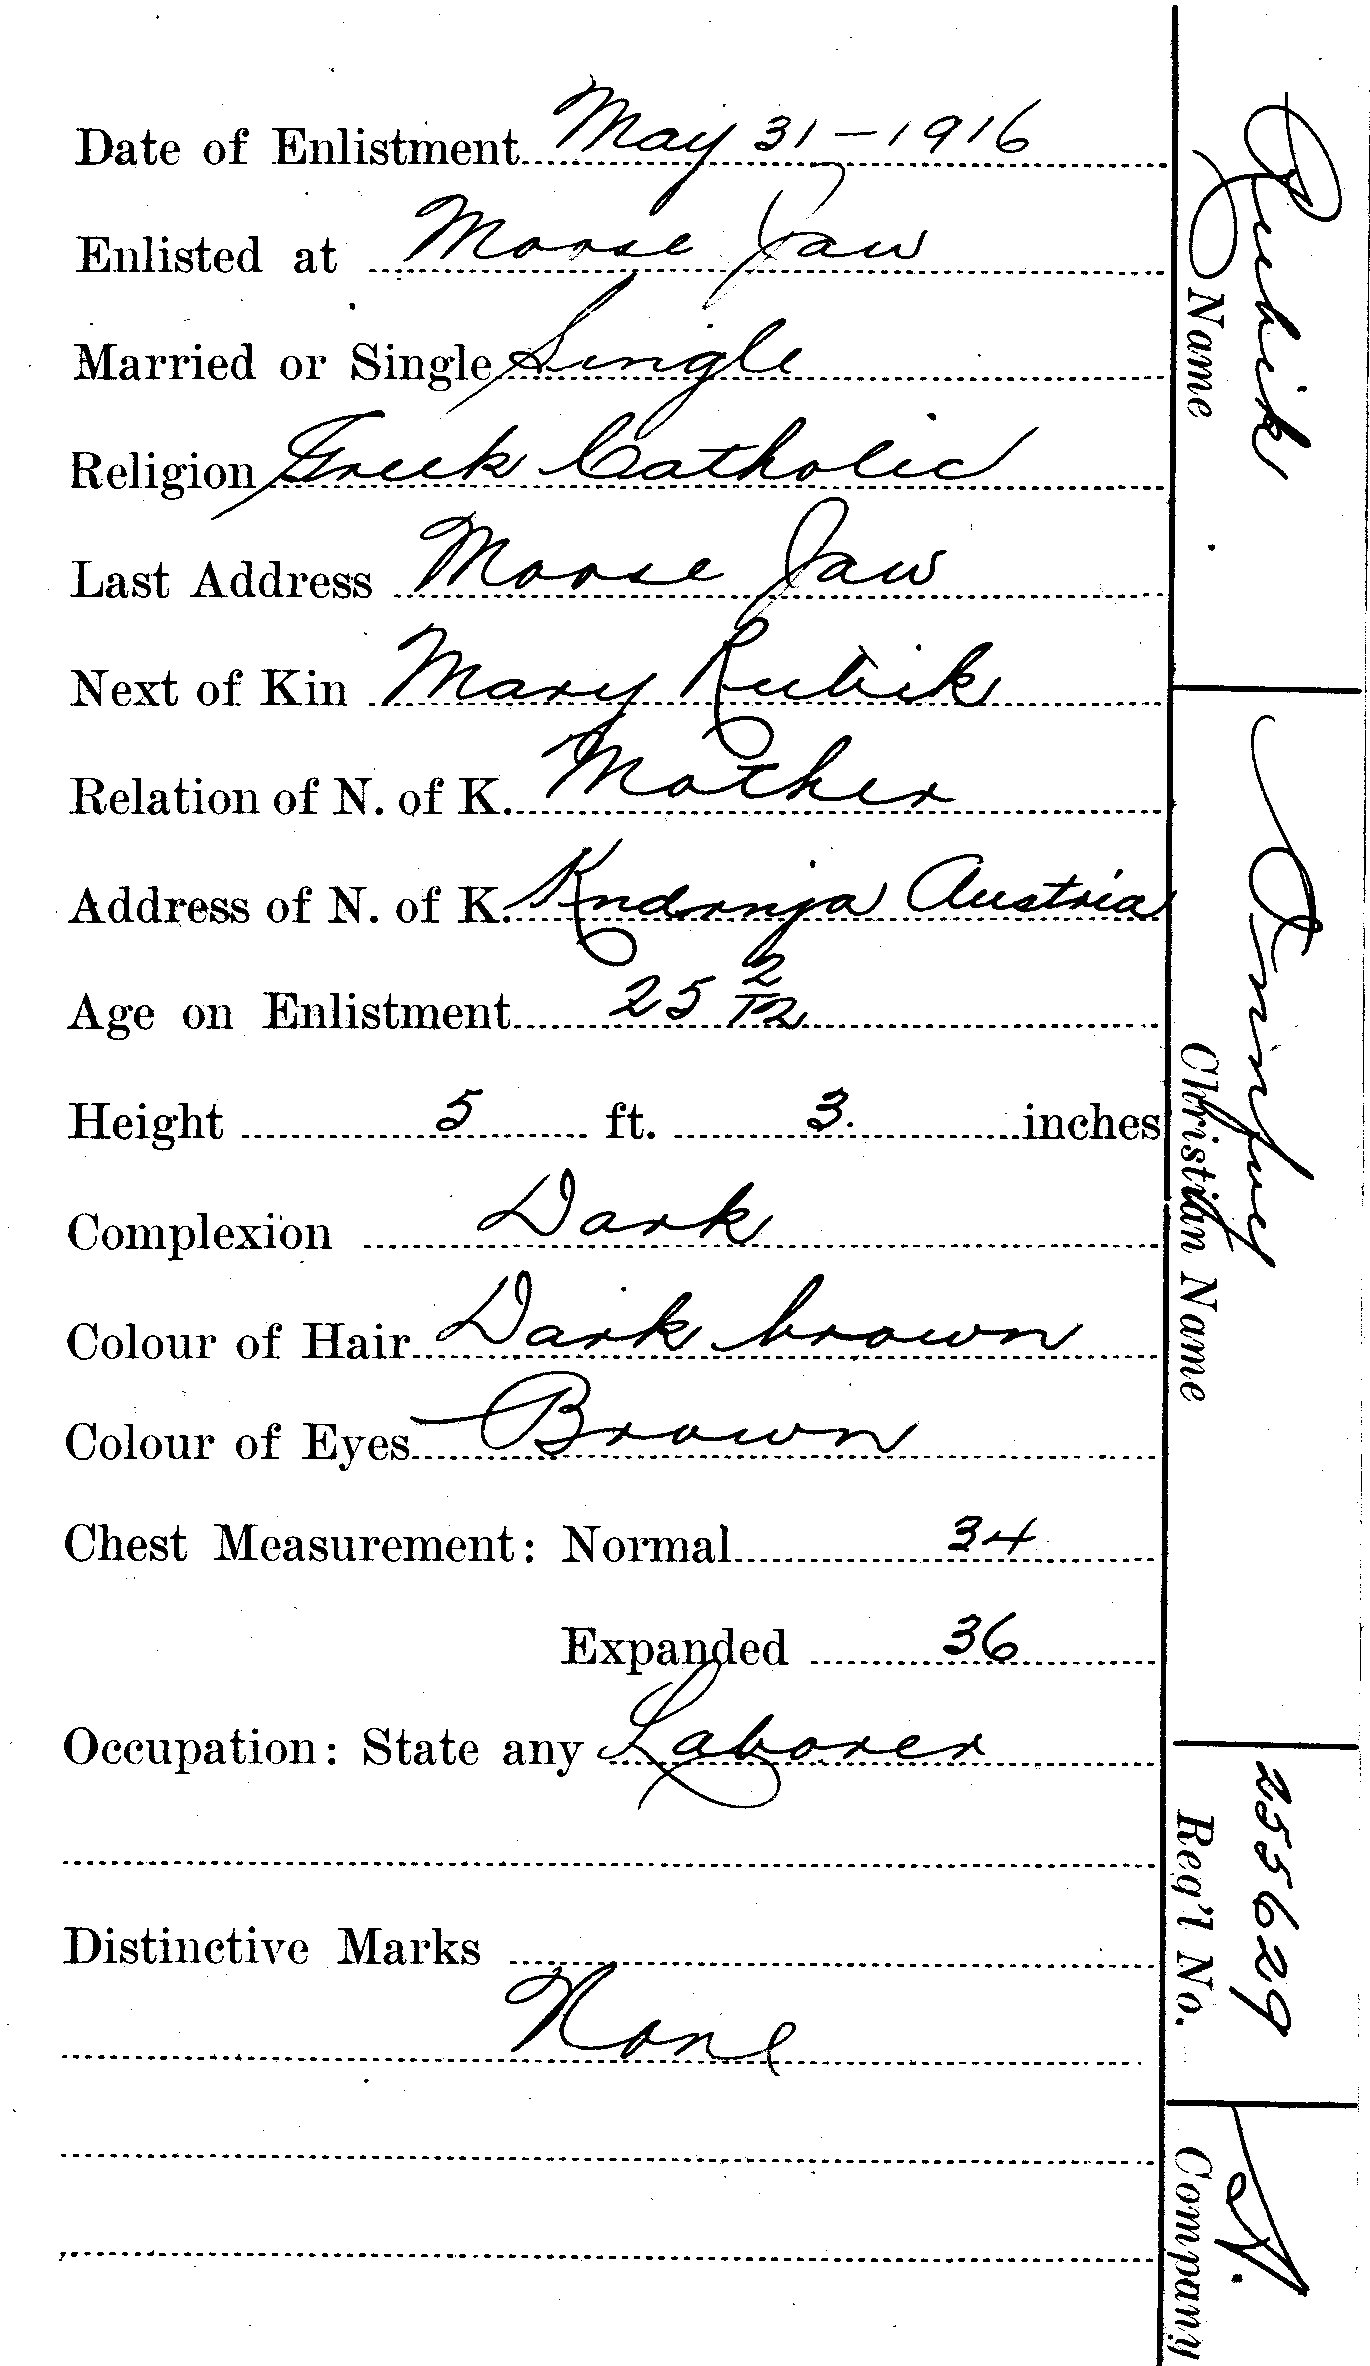 Date of Enlistment May 31-1916
Enlisted at Moose Jaw
Married or Single Single
Religion Greek Catholic
Last Address Moose Jaw
Next of Kin Mary Rubik
Relation of N. of K. Mother
Address of N. of K. Austria
Age on Enlistment 25 2/12
Height 5 ft. 3 inches
Complexion Dark
Colour of Hair Dark brown
Colour of Eyes Brown
Chest Measurement: Normal 34
Expanded 36
Occupation: State any Laborer
Distinctive Marks
None
Rubik
Name
Christian Name
255629
Reg'l No.
A.
Company